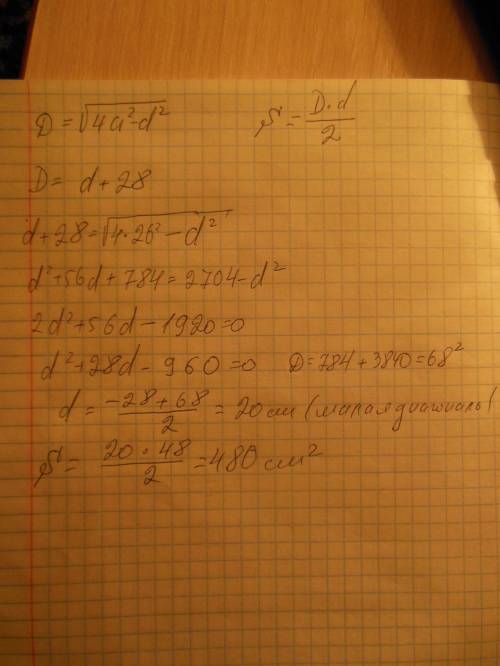 D = √(4a² - d²) S = D·d/2
D = d + 28
d + 28 = √(4·26² - d²)
d² + 56d + 784 = 2704 - d²
2d² + 56d - 1920 = 0
d² + 28d - 960 = 0 D = 784 + 3840 = 68²
d = (-28 + 68)/2 = 20 см (малая диагональ)
S = (20·48)/2 = 480 см²